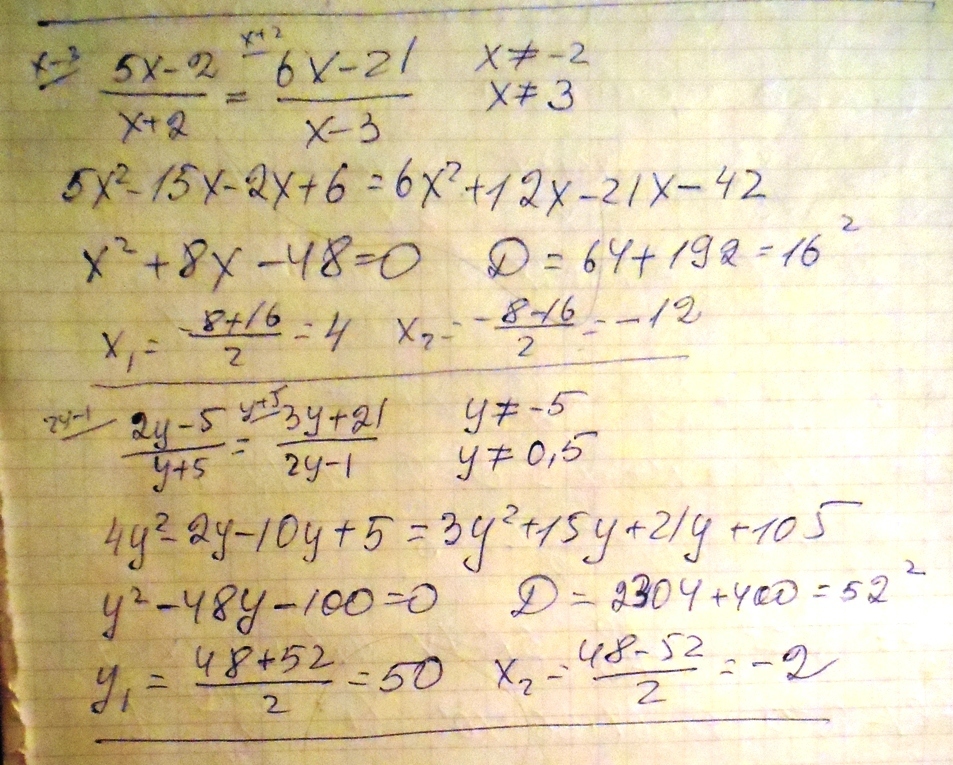 x-3/ (5x-2)/(x+2) = x+2/ (6x-21)/(x-3)   x≠-2
x≠3
5x²-15x-2x+6=6x²+12x-21x-42
x²+8x-48=0   D=64+192=16²
x₁=(-8+16)/2=4   x₂=(-8-16)/2=-12
2y-1/ (2y-5)/(y+5) = y+5/ (3y+21)/(2y-1)   y≠-5
y≠0,5
4y²-2y-10y+5=3y²+15y+21y+105
y²-48y-100=0   D=2304+400=52²
y₁=(48+52)/2=50   x₂=(48-52)/2=-2